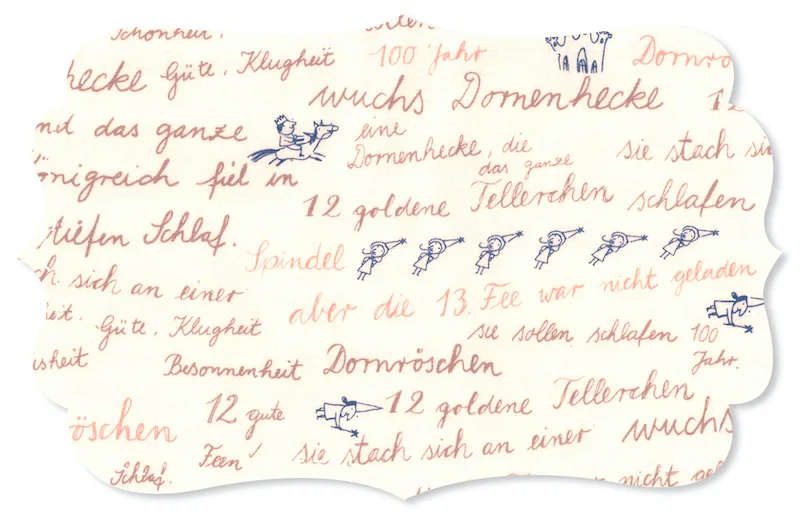 Schönheit,
hecke Güte, Klugheit 100 Jahr Dornrö
wuchs Dornenhecke 12
nd das ganze eine
Dornenhecke, die sie stach si
das ganze
önigreich fiel in
12 goldene Tellerchen schlafen
tiefen Schlaf.
Spindel
ch sich an einer
aber die 13. Fee war nicht geladen
eit, Güte, Klugheit sie sollen schlafen 100
Jahr.
isheit Besonnenheit Dornröschen
12 goldene Tellerchen
öschen 12 gute
wuchs
Feen sie stach sich an einer
Schlaf. nicht gel